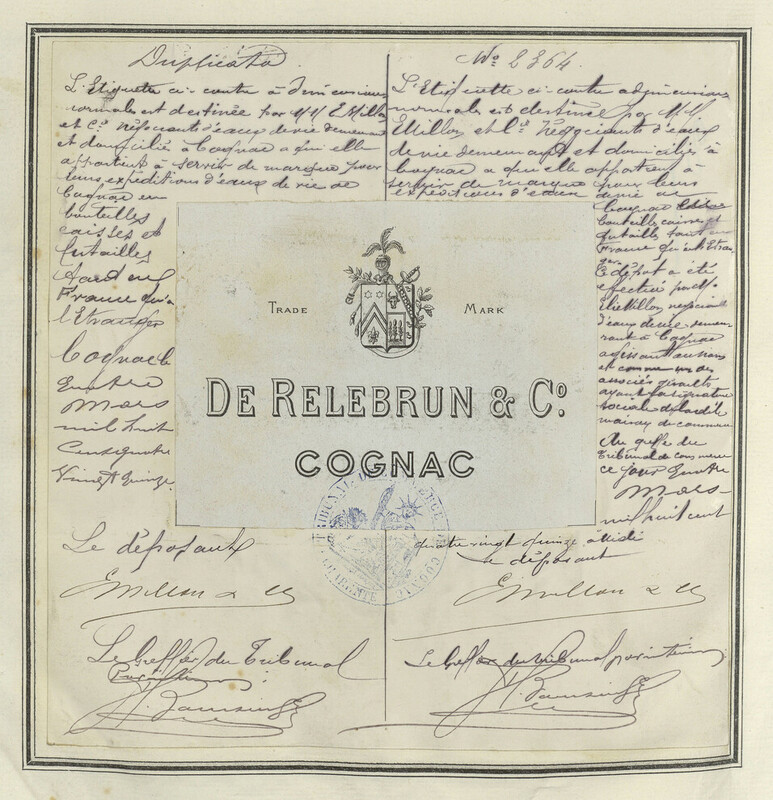 Duplicata
L'Etiquette ci-contre à dimensions
normales est destinée par MM E Millon
et Cie négociants d'eaux de vie demeurant
et domicilié à Cognac a qui elle
appartient à servir de marque pour
leurs expéditions d'eaux de vie de
Cognac en
bouteilles
caisses et
futailles
tant en
France qu'à
l'Etranger
Cognac le
quatre
Mars
mil huit
cent quatre
vingt quinze
Le déposant
E Millon & Cie
Le Greffier du Tribunal
No 2364.
L'Etiquette ci-contre a dimensions
normales est destinée par MM
E Millon et Cie Négociants d'eaux
de vie demeurant et domiciliés à
Cognac a qui elle appartient à
servir de marque pour leurs
expéditions d'eaux de vie de
Cognac
bouteilles caisses et
futailles tant en
France qu'à l'Etran
ger
Le dépôt a été
effectué par M
E Millon négociant
d'eaux de vie demeu-
rant à Cognac
agissant au nom
et comme un des
associés gérants
ayant la signature
sociale de la dite
maison de commerce
Au greffe du
Tribunal de commerce
ce jour quatre
Mars
mil huit cent
quatre vingt quinze
le déposant
E Millon & Cie
Le Greffier du tribunal
TRADE MARK
DE RELEBRUN & Co.
COGNAC
TRIBUNAL DE COMMERCE
COGNAC
CHARENTE